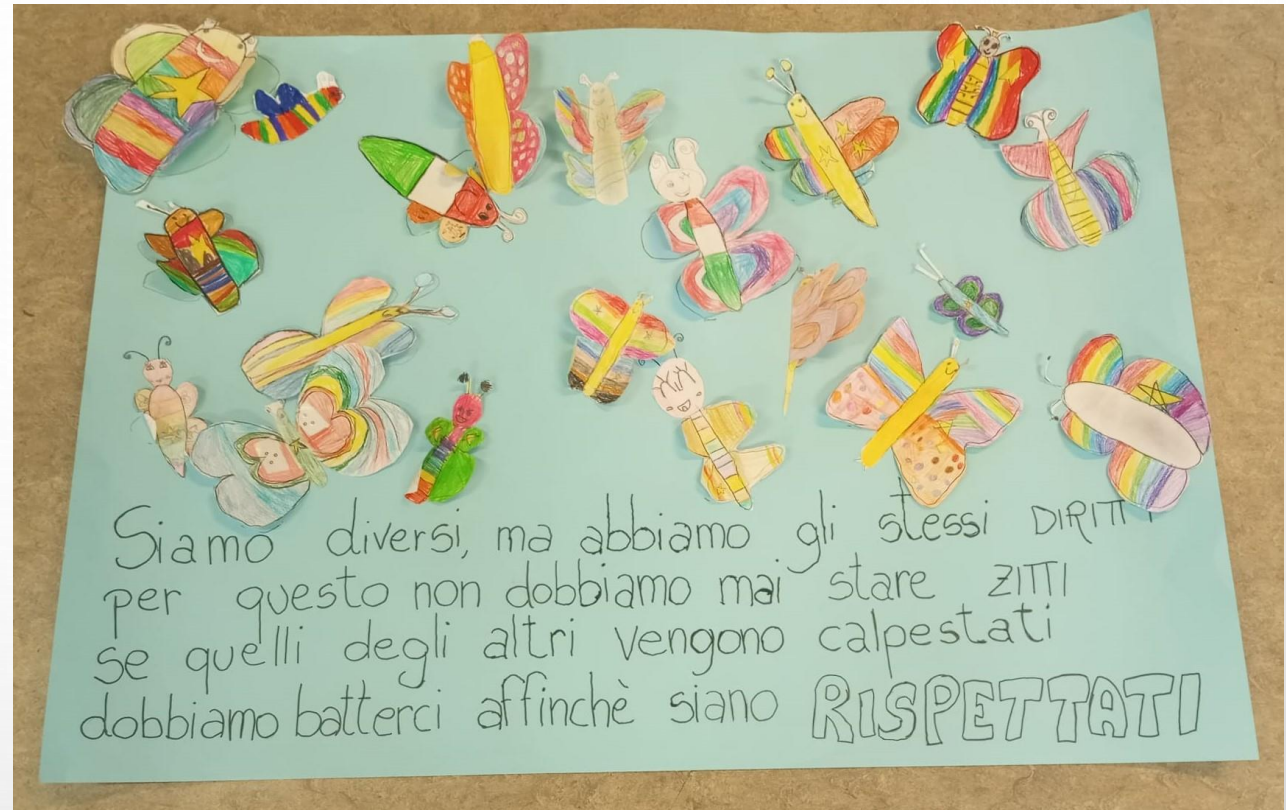 Siamo diversi, ma abbiamo gli stessi DIRITTI
per questo non dobbiamo mai stare ZITTI
se quelli degli altri vengono calpestati
dobbiamo batterci affinchè siano RISPETTATI